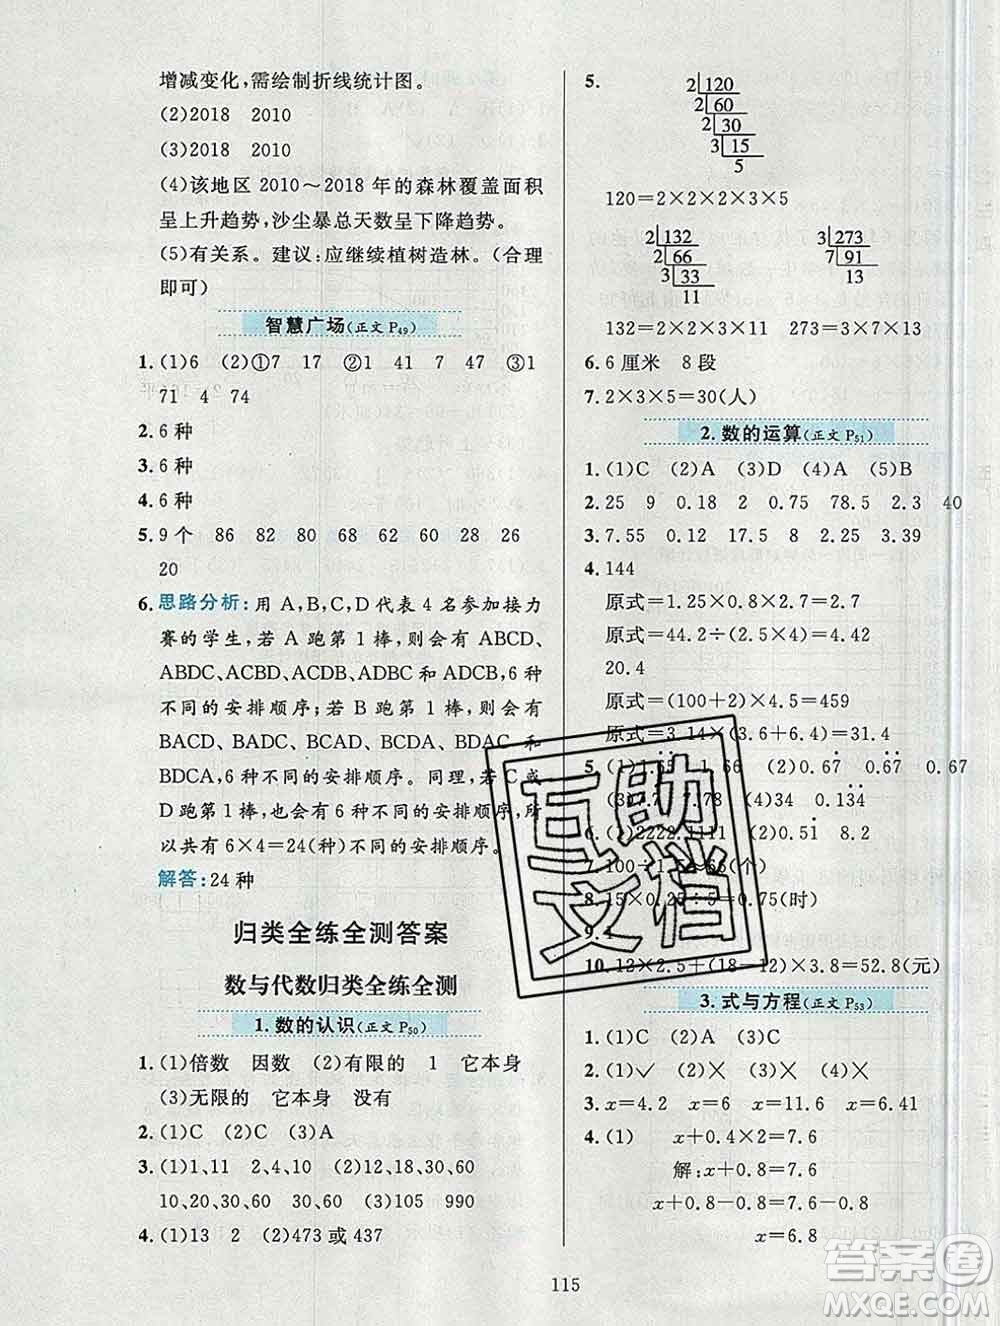 增减变化,需绘制折线统计图。
(2)2018 2010
(3)2018 2010
(4)该地区 2010～2018 年的森林覆盖面积
呈上升趋势,沙尘暴总天数呈下降趋势。
(5)有关系。建议:应继续植树造林。(合理
即可)
智慧广场(正文 P49)
1. (1)6 (2)①7 17 ②1 41 7 47 ③1
71 4 74
2. 6 种
3. 6 种
4. 6 种
5. 9 个 86 82 80 68 62 60 28 26
20
6. 思路分析: 用 A,B,C,D 代表 4 名参加接力
赛的学生,若 A 跑第 1 棒,则会有 ABCD、
ABDC、ACBD、ACDB、ADBC 和 ADCB,6 种
不同的安排顺序;若 B 跑第 1 棒,则会有
BACD、BADC、BCAD、BCDA、BDAC、和
BDCA,6 种不同的安排顺序。同理,若 C 或
D 跑第 1 棒,也会有 6 种不同的安排顺序。所
以共有 6×4=24(种)不同的安排顺序。
解答: 24 种
归类全练全测答案
数与代数归类全练全测
1. 数的认识(正文 P50)
1. (1)倍数 因数 (2)有限的 1 它本身
(3)无限的 它本身 没有
2. (1)C (2)C (3)A
3. (1)1,11 2,4,10 (2)12,18,30,60
10,20,30,60 30,60 (3)105 990
4. (1)13 2 (2)473 或 437
5.
2 120
2 60
2 30
3 15
5
120=2×2×2×3×5
2 132 3 273
2 66 7 91
3 33 13
11
132=2×2×3×11 273=3×7×13
6. 6 厘米 8 段
7. 2×3×5=30(人)
2. 数的运算(正文 P51)
1. (1)C (2)A (3)D (4)A (5)B
2. 25 9 0.18 2 0.75 78.5 2.3 40
3. 7.55 0.12 17.9 8 2.25 3.39
4. 144
原式=1.25×0.8×2.7=2.7
原式=44.2÷(5×1.7)=5.2
20.4
原式=(100+2)×4.5=459
原式=3.14×(3.6+6.4)=31.4
(2)0.67 0.67 0.67
7.78 (4)34 0.134
(1)2222.1111 (2)0.51 8.2
(个)
=5=0.75(时)
10. 12×2.5+(18-12)×3.8=52.8(元)
3. 式与方程(正文 P53)
1. (1)C (2)A (3)C
2. (1)✓ (2)✕ (3)✕ (4)✕
3. x=4.2 x=6 x=11.6 x=6.41
4. (1) x+0.4×2=7.6
解:x+0.8=7.6
x+0.8-0.8=7.6-0.8
x=6.8
115
互助
文档
答案圈
MXQE.COM